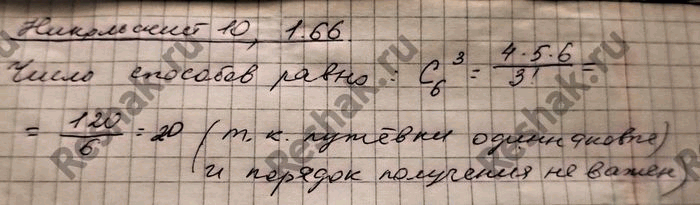 Никольский 10, 1.66.
Число способов равно: C₆³ = 4·5·6/3! =
= 120/6 = 20 (т.к. путёвки одинаковые
и порядок получения не важен)
Reshak.ru
Reshak.ru
Reshak.ru
Reshak.ru
Reshak.ru
Reshak.ru